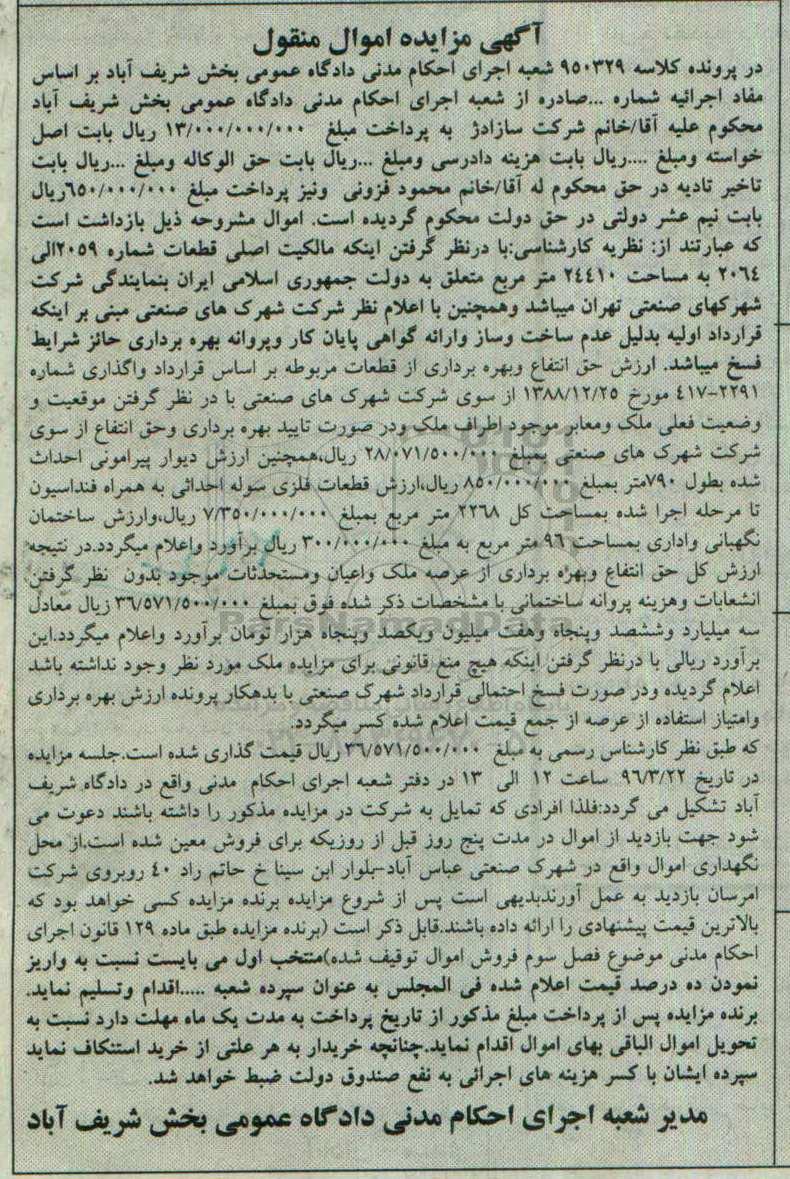 آگهی مزایده اموال منقول
در پرونده کلاسه ۹۵۰۳۲۹ شعبه اجرای احکام مدنی دادگاه عمومی بخش شریف آباد بر اساس
مفاد اجرائیه شماره ...صادره از شعبه اجرای احکام مدنی دادگاه عمومی بخش شریف آباد
محکوم علیه آقا/خانم شرکت سازادژ به پرداخت مبلغ ۱۳/۰۰۰/۰۰۰/۰۰۰ ریال بابت اصل
خواسته ومبلغ ....ریال بابت هزینه دادرسی ومبلغ ...ریال بابت حق الوکاله ومبلغ ...ریال بابت
تاخیر تادیه در حق محکوم له آقا/خانم محمود فزونی ونیز پرداخت مبلغ ۶۵۰/۰۰۰/۰۰۰ریال
بابت نیم عشر دولتی در حق دولت محکوم گردیده است. اموال مشروحه ذیل بازداشت است
که عبارتند از: نظریه کارشناسی:با درنظر گرفتن اینکه مالکیت اصلی قطعات شماره ۲۰۵۹الی
۲۰۶۴ به مساحت ۲۴۴۱۰ متر مربع متعلق به دولت جمهوری اسلامی ایران بنمایندگی شرکت
شهرکهای صنعتی تهران میباشد وهمچنین با اعلام نظر شرکت شهرک های صنعتی مبنی بر اینکه
قرارداد اولیه بدلیل عدم ساخت وساز وارائه گواهی پایان کار وپروانه بهره برداری حائز شرایط
فسخ میباشد. ارزش حق انتفاع وبهره برداری از قطعات مربوطه بر اساس قرارداد واگذاری شماره
۴۱۷-۲۲۹۱ مورخ ۱۳۸۸/۱۲/۲۵ از سوی شرکت شهرک های صنعتی با در نظر گرفتن موقعیت و
وضعیت فعلی ملک ومعابر موجود اطراف ملک ودر صورت تایید بهره برداری وحق انتفاع از سوی
شرکت شهرک های صنعتی بمبلغ ۲۸/۰۷۱/۵۰۰/۰۰۰ ریال،همچنین ارزش دیوار پیرامونی احداث
شده بطول ۷۹۰متر بمبلغ ۸۵۰/۰۰۰/۰۰۰ ریال،ارزش قطعات فلزی سوله احداثی به همراه فنداسیون
تا مرحله اجرا شده بمساحت کل ۲۲۶۸ متر مربع بمبلغ ۷/۳۵۰/۰۰۰/۰۰۰ ریال،وارزش ساختمان
نگهبانی واداری بمساحت ۹۶ متر مربع به مبلغ ۳۰۰/۰۰۰/۰۰۰ ریال برآورد واعلام میگردد.در نتیجه
ارزش کل حق انتفاع وبهره برداری از عرصه ملک واعیان ومستحدثات موجود بدون نظر گرفتن
انشعابات وهزینه پروانه ساختمانی با مشخصات ذکر شده فوق بمبلغ ۳۶/۵۷۱/۵۰۰/۰۰۰ ریال معادل
سه میلیارد وششصد وپنجاه وهفت میلیون ویکصد وپنجاه هزار تومان برآورد واعلام میگردد.این
برآورد ریالی با درنظر گرفتن اینکه هیچ منع قانونی برای مزایده ملک مورد نظر وجود نداشته باشد
اعلام گردیده ودر صورت فسخ احتمالی قرارداد شهرک صنعتی با بدهکار پرونده ارزش بهره برداری
وامتیاز استفاده از عرصه از جمع قیمت اعلام شده کسر میگردد.
که طبق نظر کارشناس رسمی به مبلغ ۳۶/۵۷۱/۵۰۰/۰۰۰ ریال قیمت گذاری شده است.جلسه مزایده
در تاریخ ۹۶/۳/۲۲ ساعت ۱۲ الی ۱۳ در دفتر شعبه اجرای احکام مدنی واقع در دادگاه شریف
آباد تشکیل می گردد:فلذا افرادی که تمایل به شرکت در مزایده مذکور را داشته باشند دعوت می
شود جهت بازدید از اموال در مدت پنج روز قبل از روزیکه برای فروش معین شده است.از محل
نگهداری اموال واقع در شهرک صنعتی عباس آباد-بلوار ابن سینا خ حاتم راد ۴۰ روبروی شرکت
امرسان بازدید به عمل آورندبدیهی است پس از شروع مزایده برنده مزایده کسی خواهد بود که
بالاترین قیمت پیشنهادی را ارائه داده باشند.قابل ذکر است (برنده مزایده طبق ماده ۱۲۹ قانون اجرای
احکام مدنی موضوع فصل سوم فروش اموال توقیف شده)منتخب اول می بایست نسبت به واریز
نمودن ده درصد قیمت اعلام شده فی المجلس به عنوان سپرده شعبه .....اقدام وتسلیم نماید.
برنده مزایده پس از پرداخت مبلغ مذکور از تاریخ پرداخت به مدت یک ماه مهلت دارد نسبت به
تحویل اموال الباقی بهای اموال اقدام نماید.چنانچه خریدار به هر علتی از خرید استنکاف نماید
سپرده ایشان با کسر هزینه های اجرائی به نفع صندوق دولت ضبط خواهد شد.
مدیر شعبه اجرای احکام مدنی دادگاه عمومی بخش شریف آباد
ParsNamadData